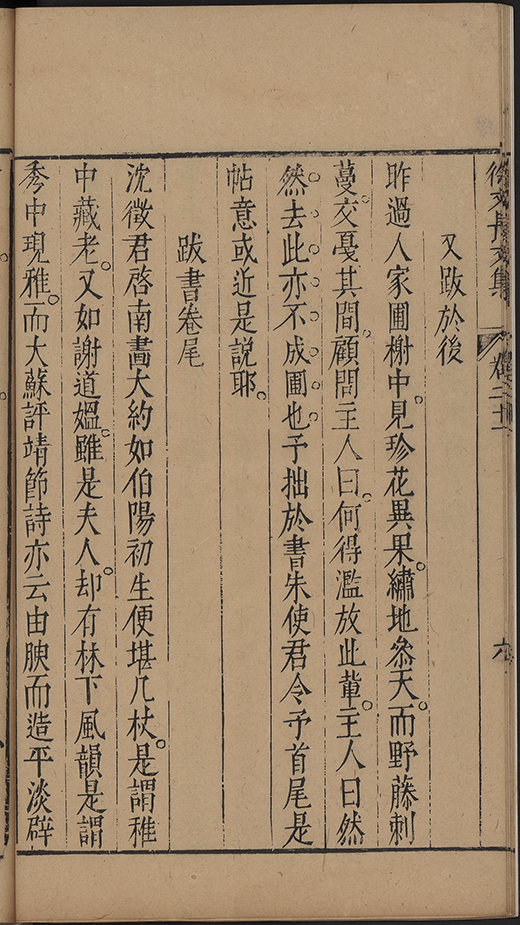 徐文長文集 卷二十一 六
又跋於後
昨過人家圃榭中。見珍花異果。繡地參天。而野藤刺
蔓。交戞其間。顧問主人曰。何得濫放此輩。主人曰然
然去此亦不成圃也。予拙於書朱使君令予首尾是
帖意或近是說耶。
跋書卷尾
沈徵君啓南畫大約如伯陽初生便堪几杖。是謂稚
中藏老。又如謝道媼。雖是夫人。却有林下風韻是謂
秀中現雅。而大蘇評靖節詩亦云由腴而造平淡辟